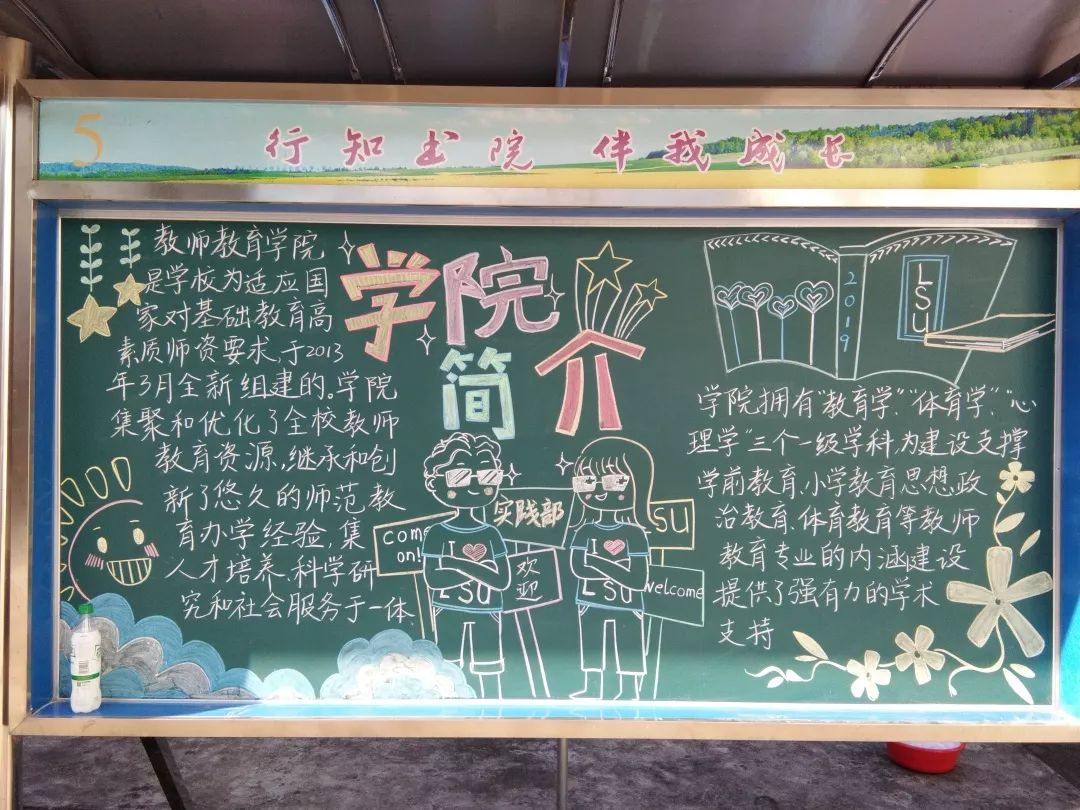 5
行知书院 伴我成长
教师教育学院
是学校为适应国
家对基础教育高
素质师资要求,于2013
年3月全新组建的。学院
集聚和优化了全校教师
教育资源,继承和创
新了悠久的师范教
育办学经验,集
人才培养、科学研
究和社会服务于一体
学院
简介
2019
LSU
学院拥有"教育学"、"体育学"、"心
理学"三个一级学科,为建设支撑
学前教育、小学教育思想,政
治教育、体育教育等教师
教育专业的内涵建设
提供了强有力的学术
支持
come
on!
实践部
SU
I
LSU
欢迎
I
LSU
Welcome